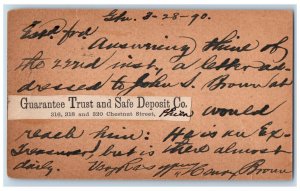 Gtn. 3-28-90.
Answering thine of
the 22nd inst, a letter ad-
dressed to John S. Brown at
Guarantee Trust and Safe Deposit Co.
316, 318 and 320 Chestnut Street, Phila would
reach him: He is an Ex-
Treasurer, but is there almost
daily. Henry Brown